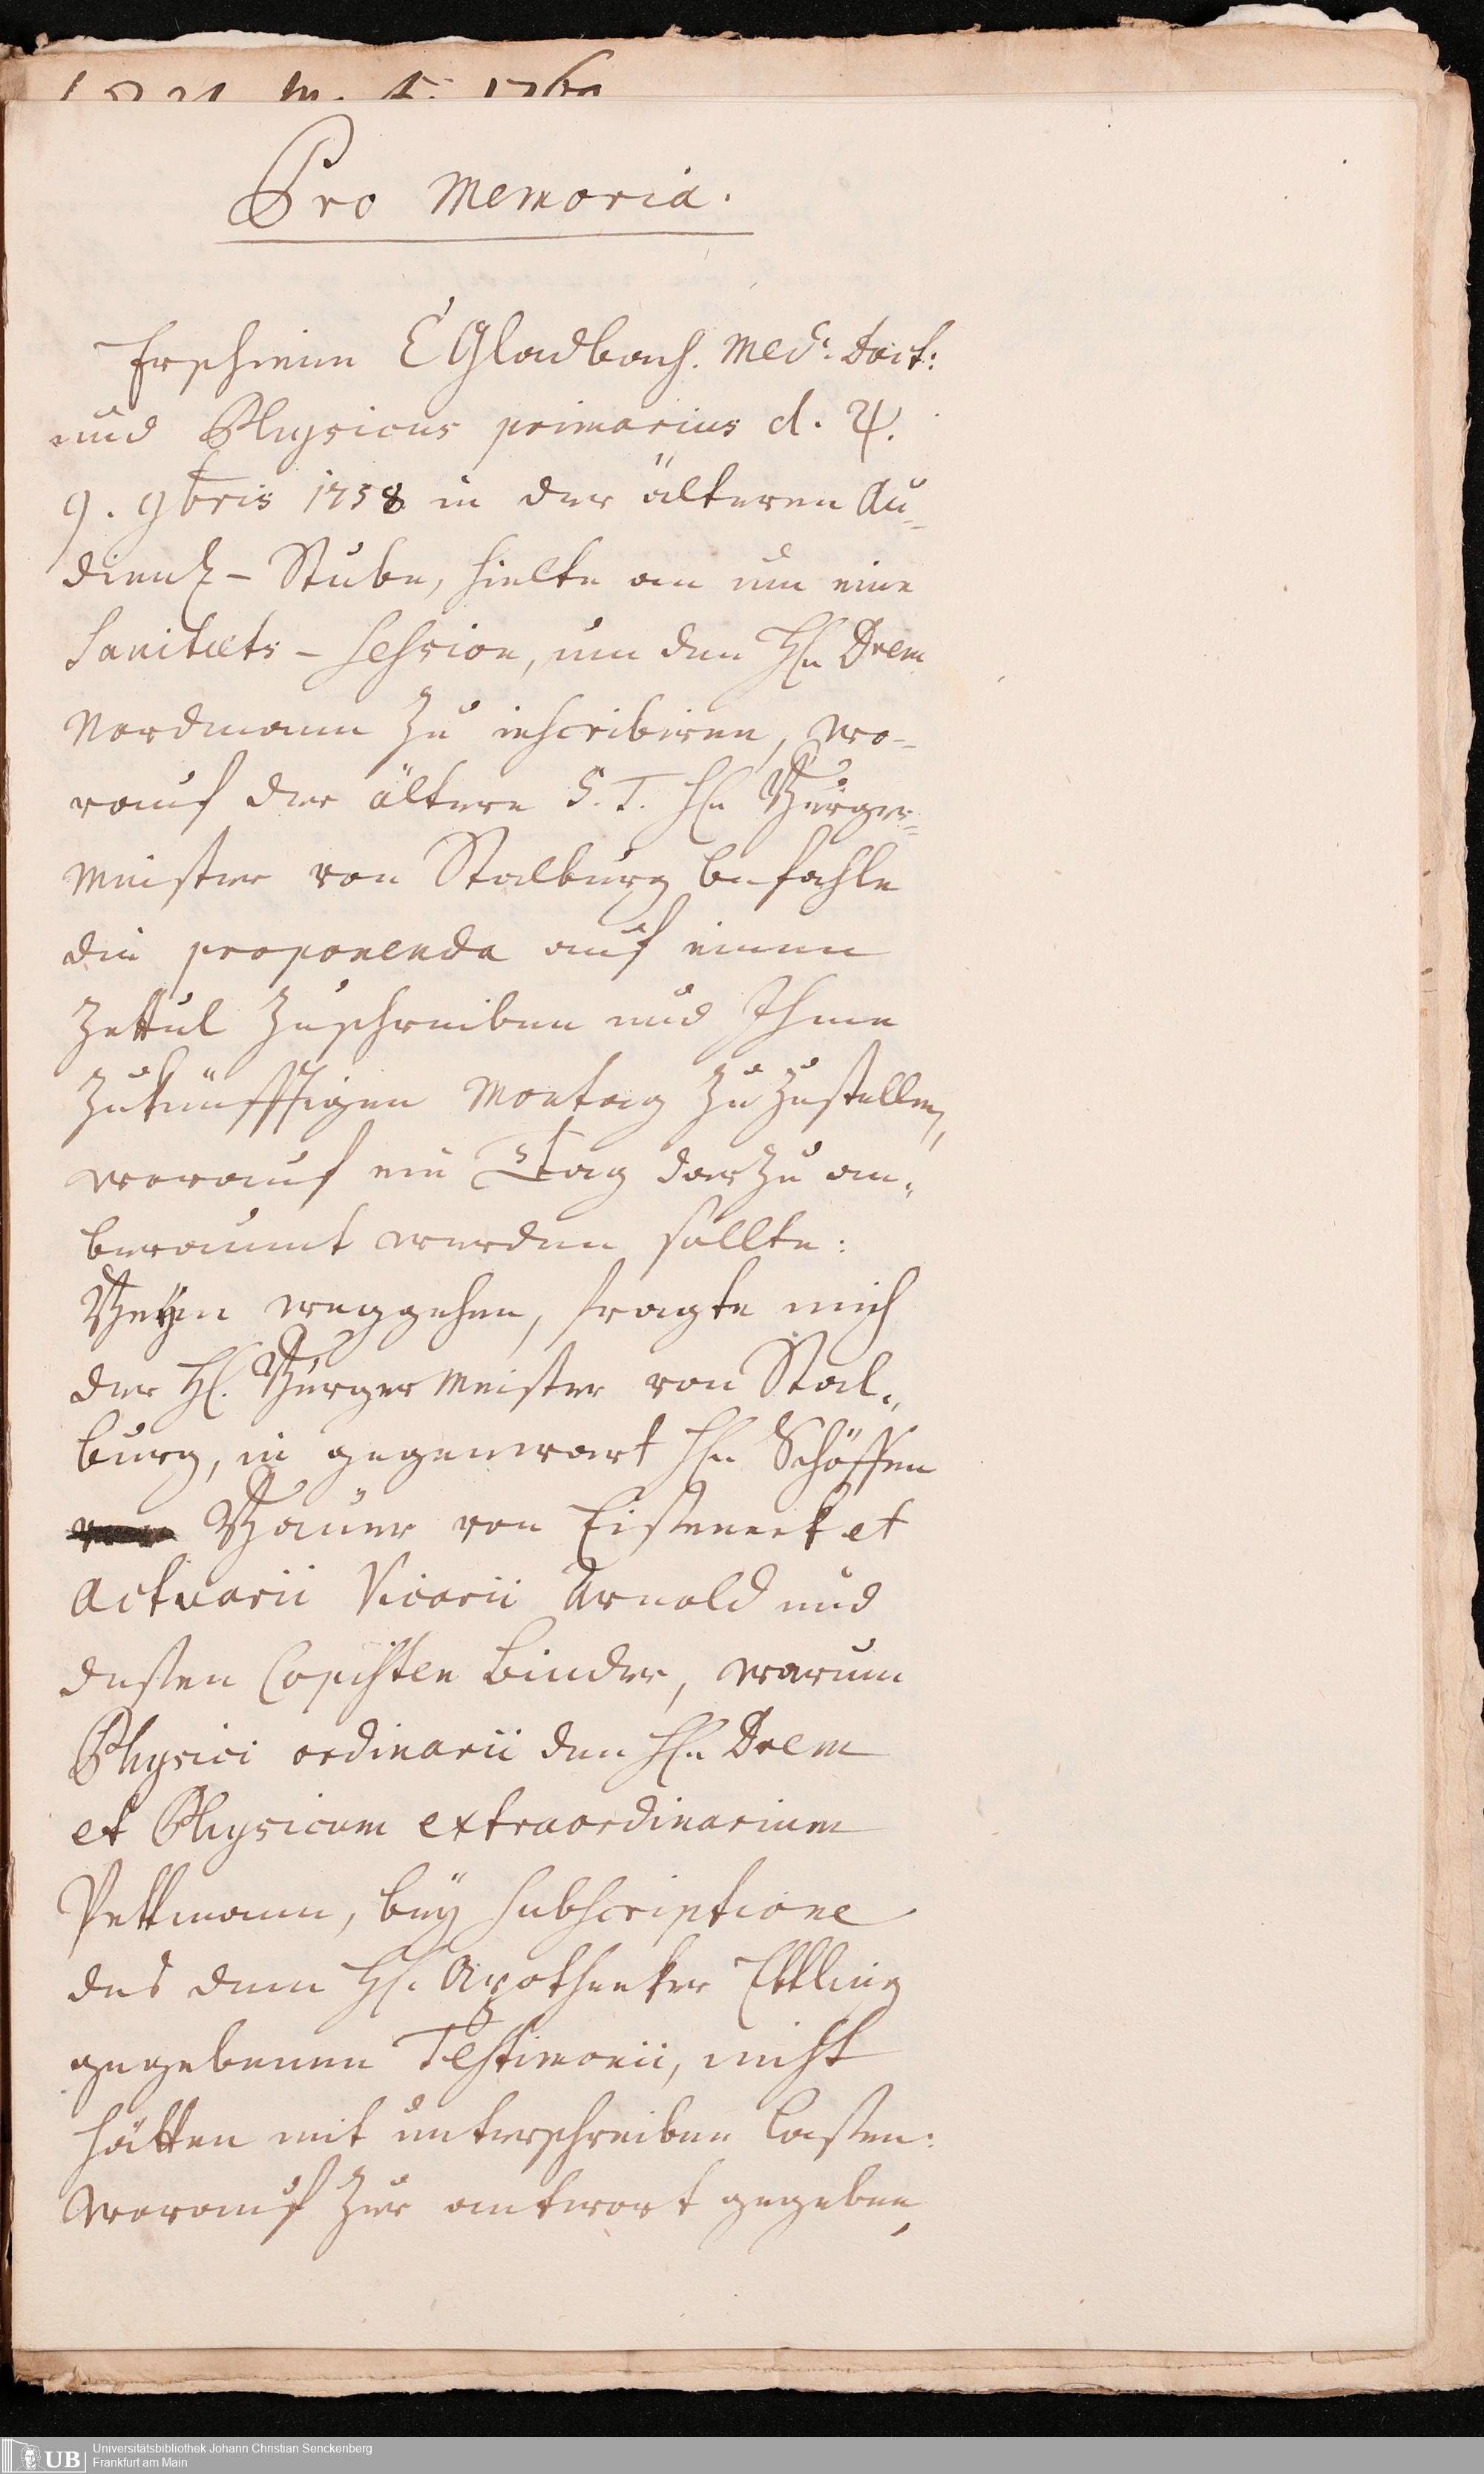 Pro Memoria.
Erschiene E Gladbach. Med. Doct:
und Physicus primarius d. ♃.
9. 9bris 1758 in der älteren Au-
dientz-Stube, hielte an um eine
Sanitæts-Session, um den Hn Drem
Nordmann zu inscribiren, wo-
rauf der ältere S. T. Hn Bürger-
meister von Stalburg befahle
die proponenda auf einen
Zettul zuschreiben und Ihme
zukünfftigen Montag zu zustellen,
worauf ein Tag darzu an-
beraumt werden sollte:
Beym weggehen, fragte mich
der H. Bürgermeister von Stal-
burg, in gegenwart Hn Schöffen
Bauer von Eisseneck et
Actuarii Vicarii Arnold und
dessen Copisten Binder, warum
Physici ordinarii den Hn Drem
et Physicum extraordinarium
Pettmann, bey subscriptione
des dem H. Apothecker Ettling
gegebenen Testimonii, nicht
hätten mit unterschreiben lassen:
Worauf zur antwort gegeben,
Universitätsbibliothek Johann Christian Senckenberg
Frankfurt am Main
UB